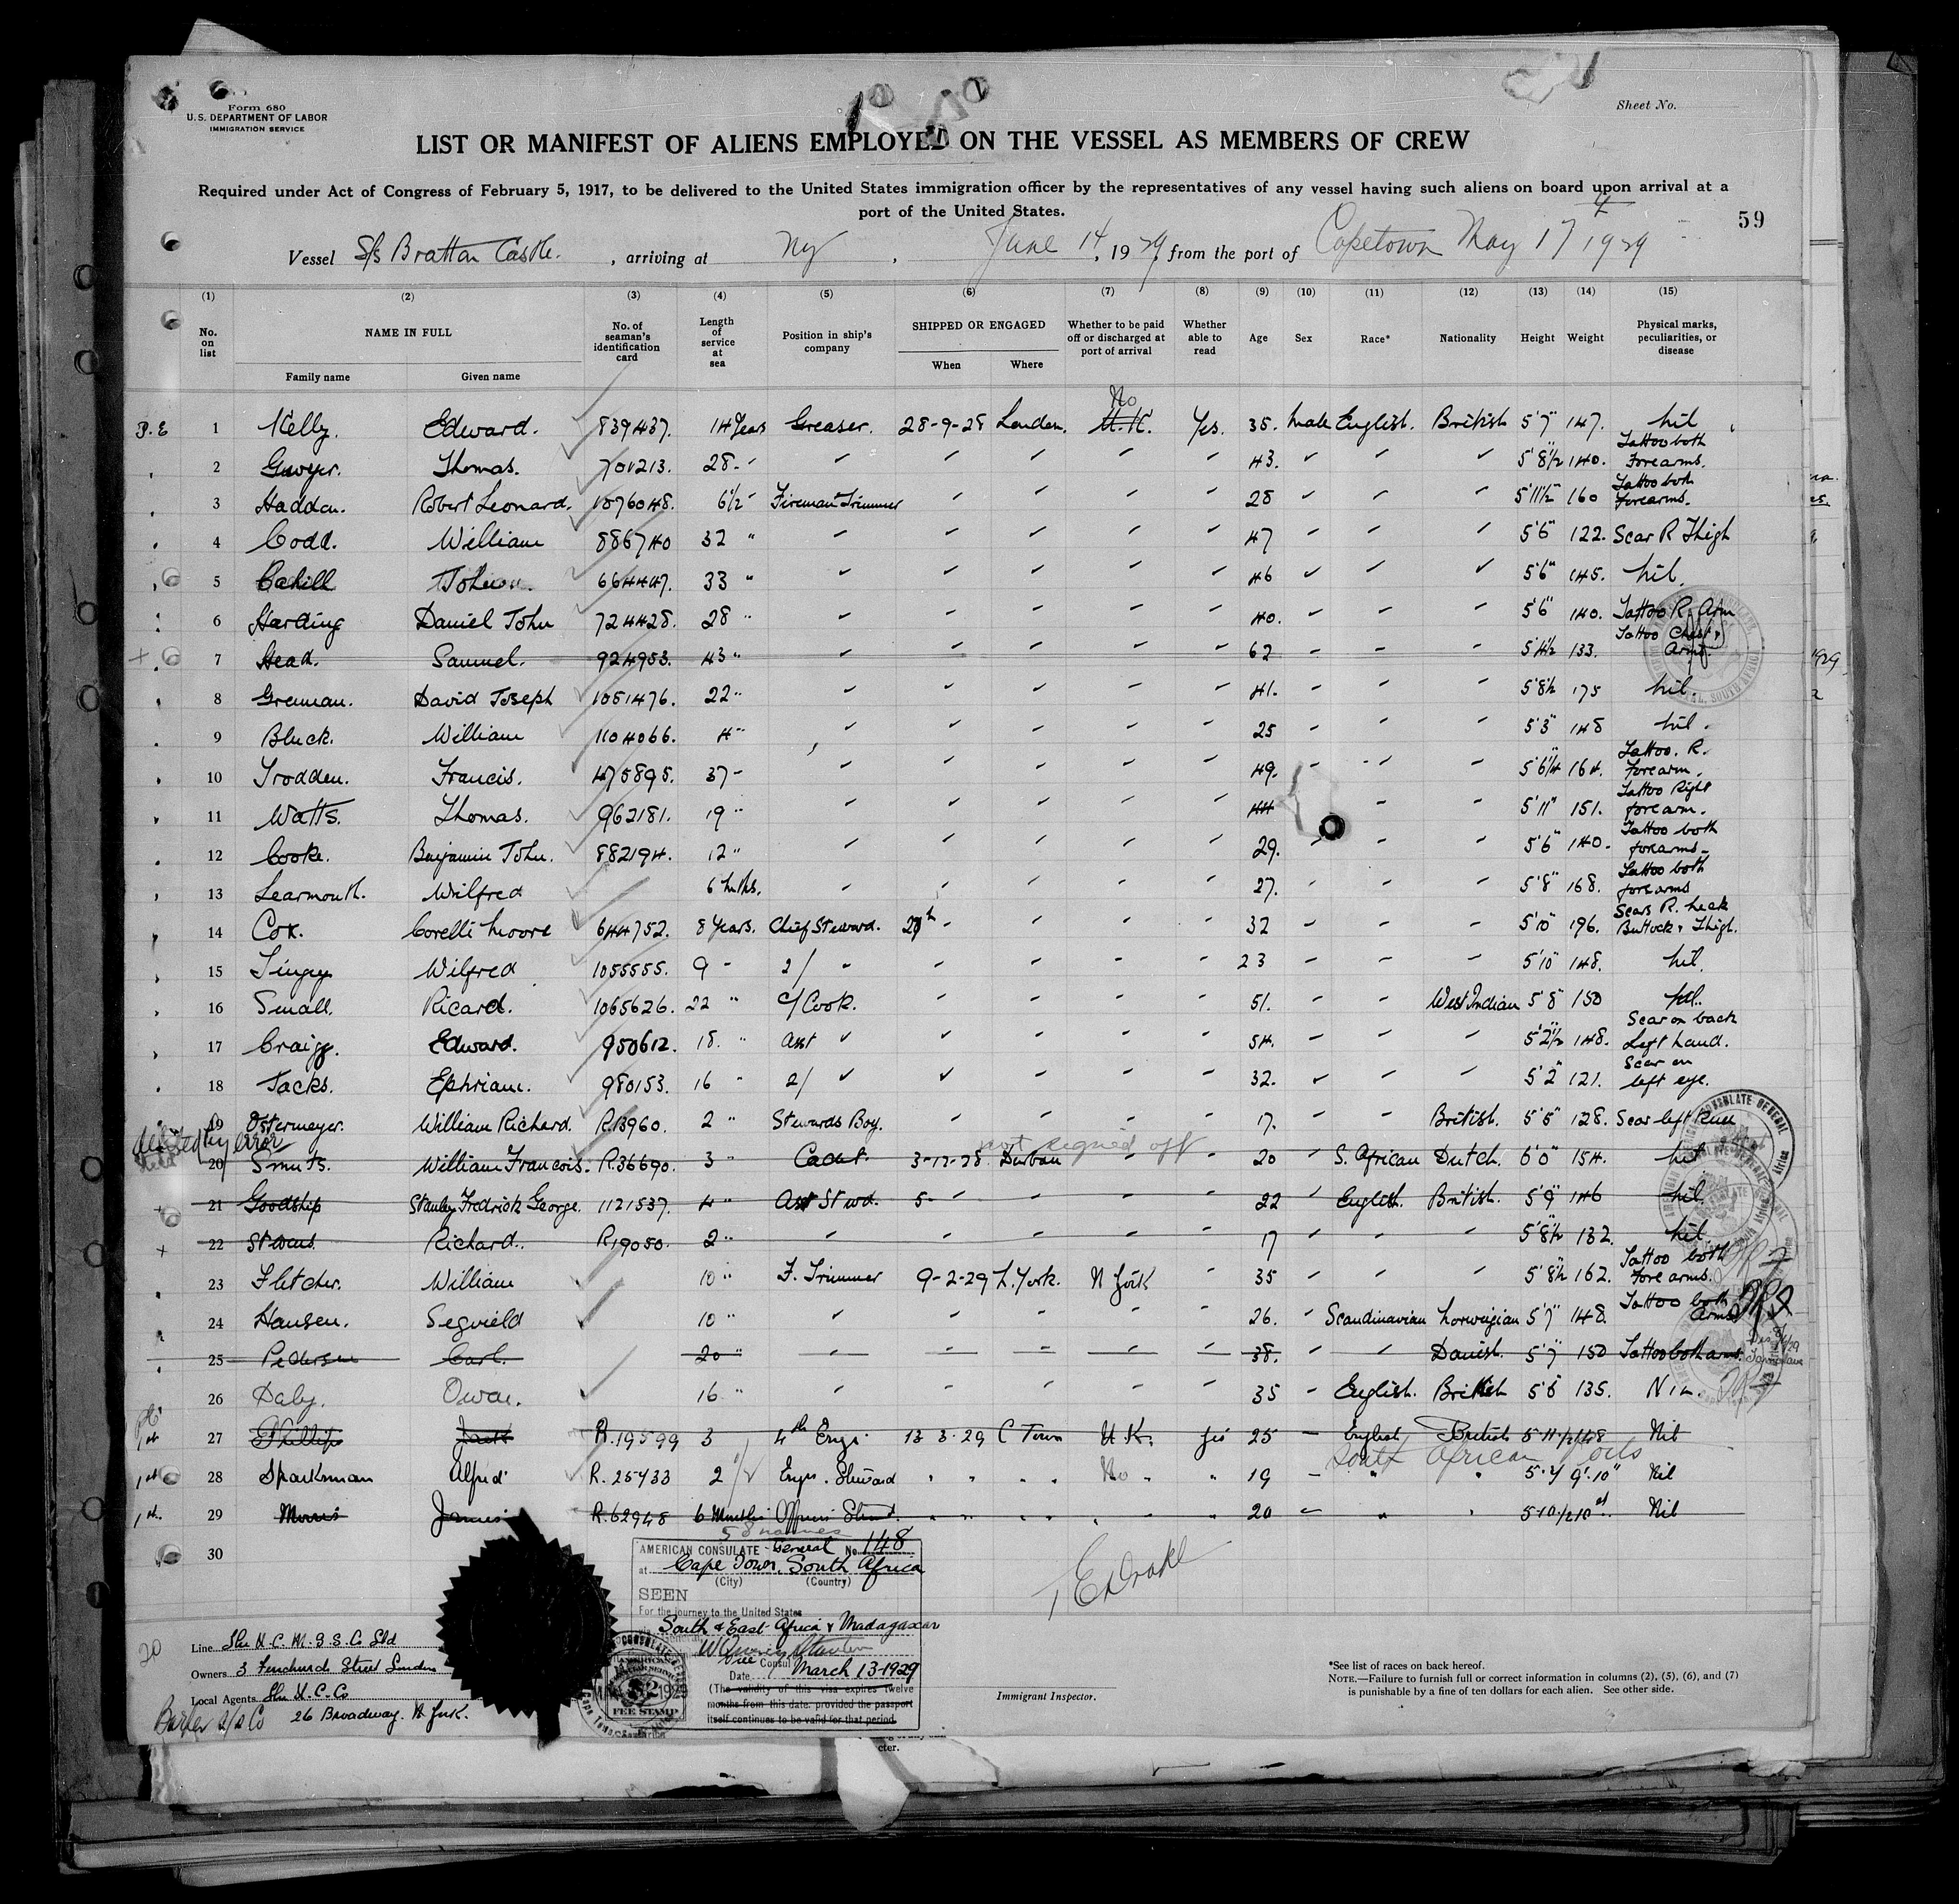 Form 680
U.S. DEPARTMENT OF LABOR
IMMIGRATION SERVICE
Sheet No.
LIST OR MANIFEST OF ALIENS EMPLOYED ON THE VESSEL AS MEMBERS OF CREW
Required under Act of Congress of February 5, 1917, to be delivered to the United States immigration officer by the representatives of any vessel having such aliens on board upon arrival at a
port of the United States.
59
Vessel S/s Bratton Castle. , arriving at Ny , June 14, 1929, from the port of Capetown May 17 1929
(1) (2) (3) (4) (5) (6) (7) (8) (9) (10) (11) (12) (13) (14) (15)
No. on list NAME IN FULL Family name Given name No. of seaman's identification card Length of service at sea Position in ship's company SHIPPED OR ENGAGED When Where Whether to be paid off or discharged at port of arrival Whether able to read Age Sex Race* Nationality Height Weight Physical marks, peculiarities, or disease
P.E 1 Kelly. Edward. 839437. 14 Years Greaser. 28-9-28 London. U.K. No Yes. 35. Male English. British 5'7" 147. Nil
2 Gwyer. Thomas. 701213. 28 " " " " " " 43. " " " 5'8½ 140. Tattoo both Forearms.
3 Haddon. Robert Leonard. 1076048. 6½ " Fireman Trimmer " " " " 28 " " " 5'11½" 160 Tattoo both forearms.
4 Codd. William 886740 32 " " " " " " 47 " " " 5'6" 122. Scar R Thigh
5 Cahill John 664447. 33 " " " " " " 46 " " " 5'6" 145. Nil.
6 Harding Daniel John 724428. 28 " " " " " " 40. " " " 5'6" 140. Tattoo R. Arm
7 Head. Samuel. 924953. 43 " " " " " " 62 " " " 5'4½ 133. Tattoo Chest & Arms.
8 Grennan. David Joseph 1051476. 22 " " " " " " 41. " " " 5'8½ 175 Nil.
9 Bluck. William 1104066. 4 " " " " " " 25 " " " 5'3" 148 Nil.
10 Trodden. Francis. 475895. 37 " " " " " " 49. " " " 5'6¼" 164. Tattoo. R. forearm.
11 Watts. Thomas. 962181. 19 " " " " " " 44 " " 5'11" 151. Tattoo Right forearm.
12 Cooke. Benjamin John. 882194. 12 " " " " " " 29. " " " 5'6" 140. Tattoo both forearms.
13 Learmouth. Wilfred 6 Mths. " " " " " 27. " " " 5'8" 168. Tattoo both forearms
14 Cox. Corelli Moore 644752. 8 Years. Chief Steward. " " " " 32 " " " 5'10" 196. Scars R. Neck Buttock & Thigh.
15 Wilfred 1055555. 9 " 2/ " " " " " 23 " " " 5'10" 148. Nil.
16 Small. Ricard. 1065626. 22 " C/ Cook. " " " " 51. " " West Indian 5'8" 150 Nil.
17 Craigg. Edward. 950612. 18. " Asst " " " " " 54. " " " 5'2½" 148. Scar on back Left hand.
18 Jacks. Ephriam. 980153. 16 " 2/ " " " " " 32. " " " 5'2" 121. Scar on left eye.
19 Ostermeyer. William Richard. R13960. 2 " Stewards Boy. " " " " 17. " " British. 5'5" 128. Scar left Knee
deleted by error
20 Smuts. William Francois. R36690. 3 " Cadet. 3-12-28 Durban not signed off " " 20 " S. African Dutch. 6'0" 154. Nil
21 Goodship Stanley Fredrick George. 1121537. 4 " Asst Stwd. 5- " " " " 22 " English. British. 5'9" 146 Nil.
22 Stevens Richard. R19050. 2 " " " " " " 17 " " " 5'8½ 132. Nil.
23 Fletcher. William 10 " F. Trimmer 9-2-29 N. York. N York " 35 " " " 5'8½ 162. Tattoo both Forearms.
24 Hansen. Segvield 10 " " " " " " 26. " Scandinavian Norwegian 5'7" 148. Tattoo both Arms
25 Pedersen Carl. 20 " " " " " " 38. " " Danish. 5'7" 150 Tattoo both arms.
26 Daly. Owen. 16 " " " " " " 35 " English. British 5'6" 135. Nil.
1st 27 Phillips Jack R.19599 3 4th Engr. 13 3.29 C Town U.K. yes 25 " English British 5-11½ 148 Nil
South African Ports
1st 28 Sparkman Alfred R.25433 2½ Engrs. Steward " " " " No " " 19 " " " 5.4 9'.10" Nil
1st. 29 Morris James R.62948 6 Months Officers Stwd. " " " " " " 20 " " " 5-10½ 10st Nil
30
58 names
AMERICAN CONSULATE General No 148
at Cape Town, South Africa
(City) (Country)
SEEN
For the journey to the United States
South & East Africa & Madagascar
Vice Consul
Date March 13-1929
(The validity of this visa expires twelve
months from this date, provided the passport
itself continues to be valid for that period.
FEE STAMP
T E Drake
20
Line The U.C.M.S.S. Co Ltd
Owners 3 Fenchurch Street London
Local Agents The U.C. Co
Barber S/S Co 26 Broadway. N York.
Immigrant Inspector.
*See list of races on back hereof.
NOTE.—Failure to furnish full or correct information in columns (2), (5), (6), and (7)
is punishable by a fine of ten dollars for each alien. See other side.
cter.